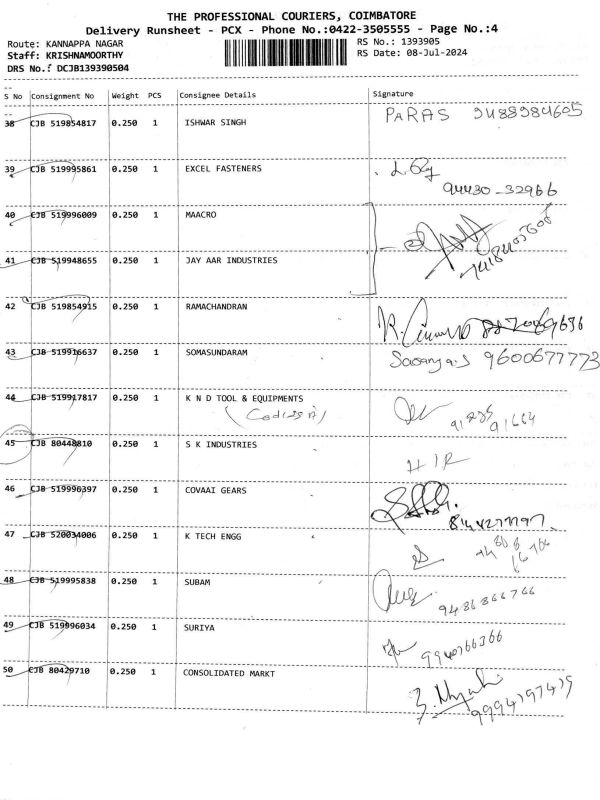 THE PROFESSIONAL COURIERS, COIMBATORE
Delivery Runsheet - PCX - Phone No.:0422-3505555 - Page No.:4
Route: KANNAPPA NAGAR RS No.: 1393905
Staff: KRISHNAMOORTHY RS Date: 08-Jul-2024
DRS No.: DCJB139390504
S No Consignment No Weight PCS Consignee Details Signature
38 CJB 519854817 0.250 1 ISHWAR SINGH PARAS 9488984605
39 CJB 519995861 0.250 1 EXCEL FASTENERS
94430-32966
40 CJB 519996009 0.250 1 MAACRO
41 CJB 519948655 0.250 1 JAY AAR INDUSTRIES
42 CJB 519854915 0.250 1 RAMACHANDRAN
43 CJB 519916637 0.250 1 SOMASUNDARAM 9600677773
44 CJB 519917817 0.250 1 K N D TOOL & EQUIPMENTS
45 CJB 80448810 0.250 1 S K INDUSTRIES
46 CJB 519996397 0.250 1 COVAAI GEARS
47 CJB 520034006 0.250 1 K TECH ENGG
48 CJB 519995838 0.250 1 SUBAM
9486866766
49 CJB 519996034 0.250 1 SURIYA
50 CJB 80429710 0.250 1 CONSOLIDATED MARKT